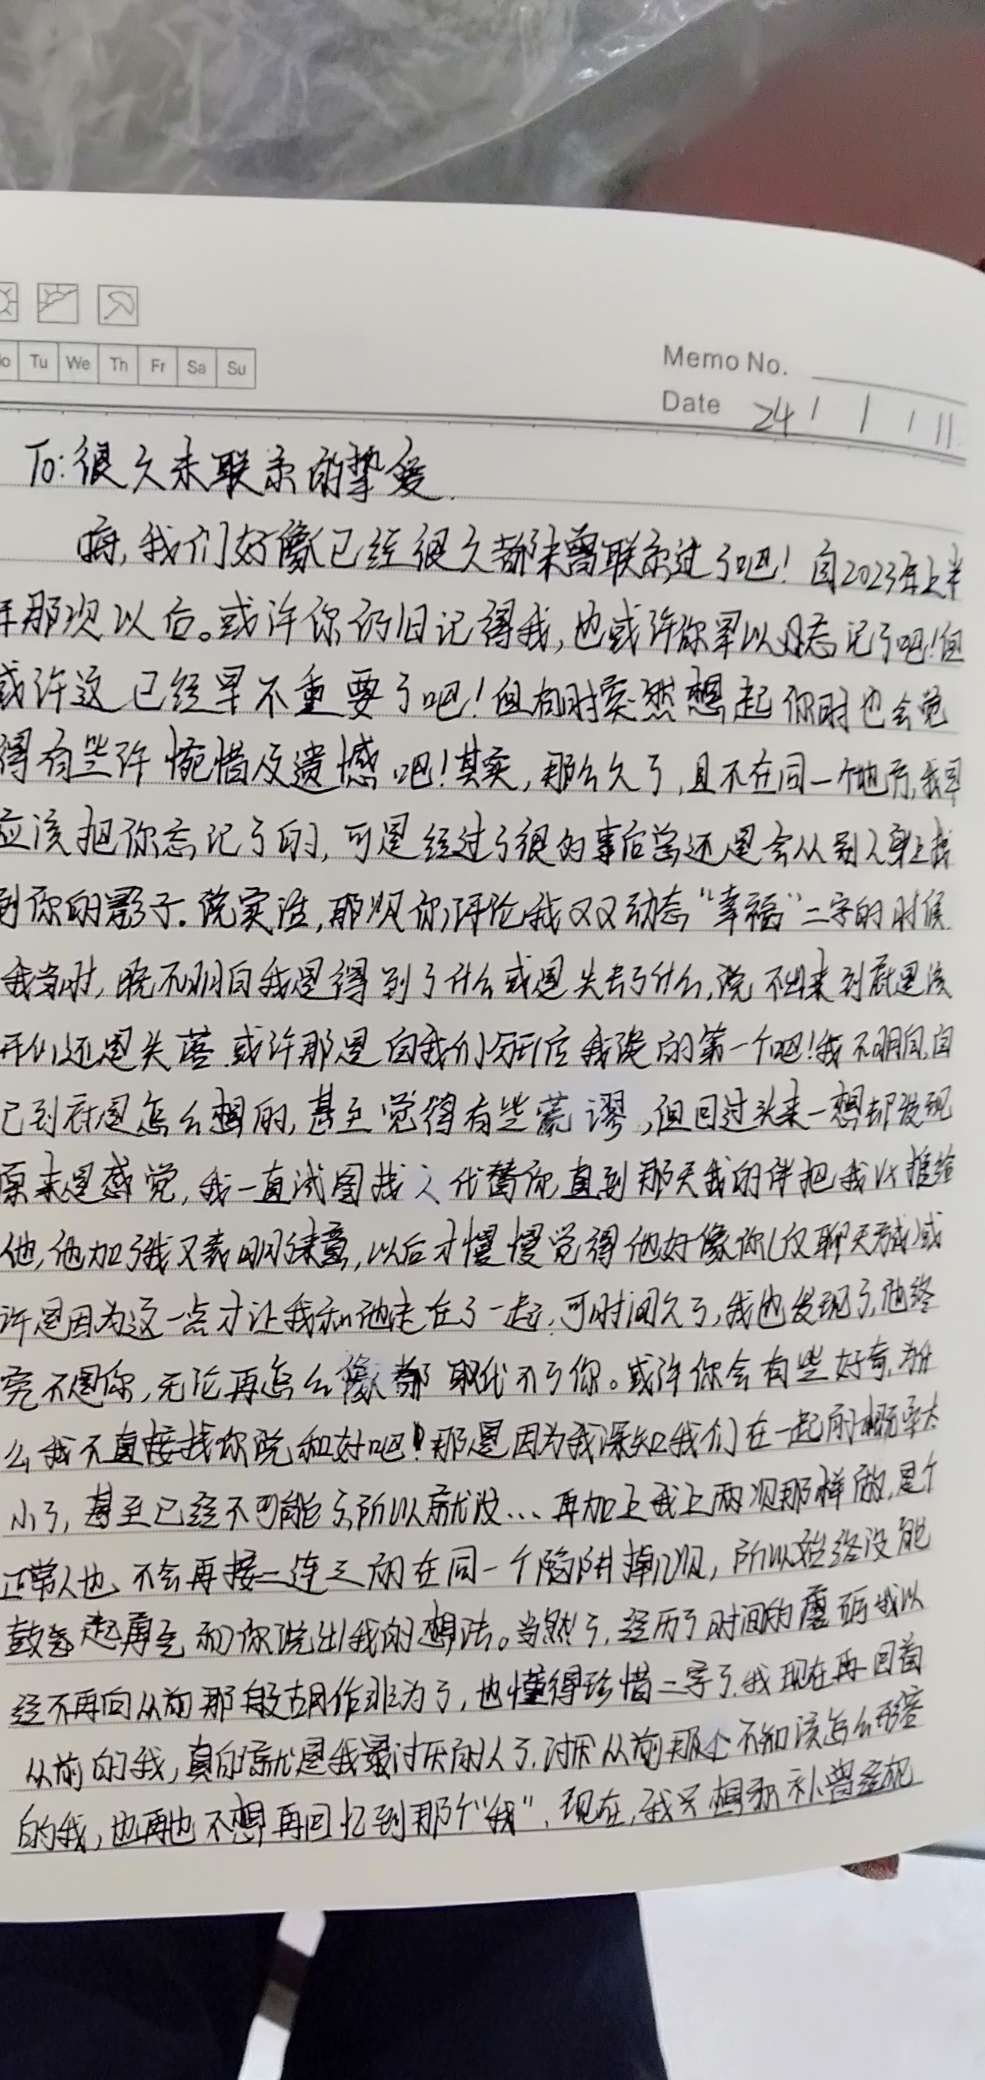 Tu We Th Fr Sa Su
Memo No.
Date 24 / 1 / 11
To:很久未联系的挚爱.
嗨,我们好像已经很久都未曾联系过了吧!自2023年上半
年那次以后。或许你仍旧记得我,也或许你早以忘记了吧!但
或许这已经早不重要了吧!但有时突然想起你时也会觉
得有些许惋惜及遗憾吧!其实,那么久了,且不在同一个地方,我早
应该把你忘记了的,可是经过了很多事后总还是会从别人身上找
到你的影子.说实话,那次你评论我又又动态“幸福”二字的时候
我当时,既不明白我是得到了什么或是失去了什么,说不出来到底是该
开心还是失落.或许那是自我们分开后我的第一个吧!我不明白自
己到底是怎么想的,甚至觉得有些荒谬,但回过头来一想却发现
原来是感觉,我一直试图找人代替你,直到那天我的伴把我以推给
他,他加了我又表明来意,以后才慢慢觉得他好像你(仅聊天)或
许是因为这一点才让我和他走在了一起,可时间久了,我也发现了,他终
究不是你,无论再怎么像都取代不了你。或许你会有些好奇,为什
么我不直接找你说和好吧!那是因为我深知我们在一起的概率太
小了,甚至已经不可能了所以就没...再加上我上两次那样做,是个
正常人也不会再接二连三的在同一个陷阱掉几次,所以始终没能
鼓起勇气和你说出我的想法。当然了,经历了时间的磨砺我以
经不再向从前那般胡作非为了,也懂得珍惜二字了.我现在再回首
从前的我,真的就是我最讨厌的人了,讨厌从前那个不知该怎么形容
的我,也再也不想再回忆到那个“我”.现在,我只想弥补曾经犯